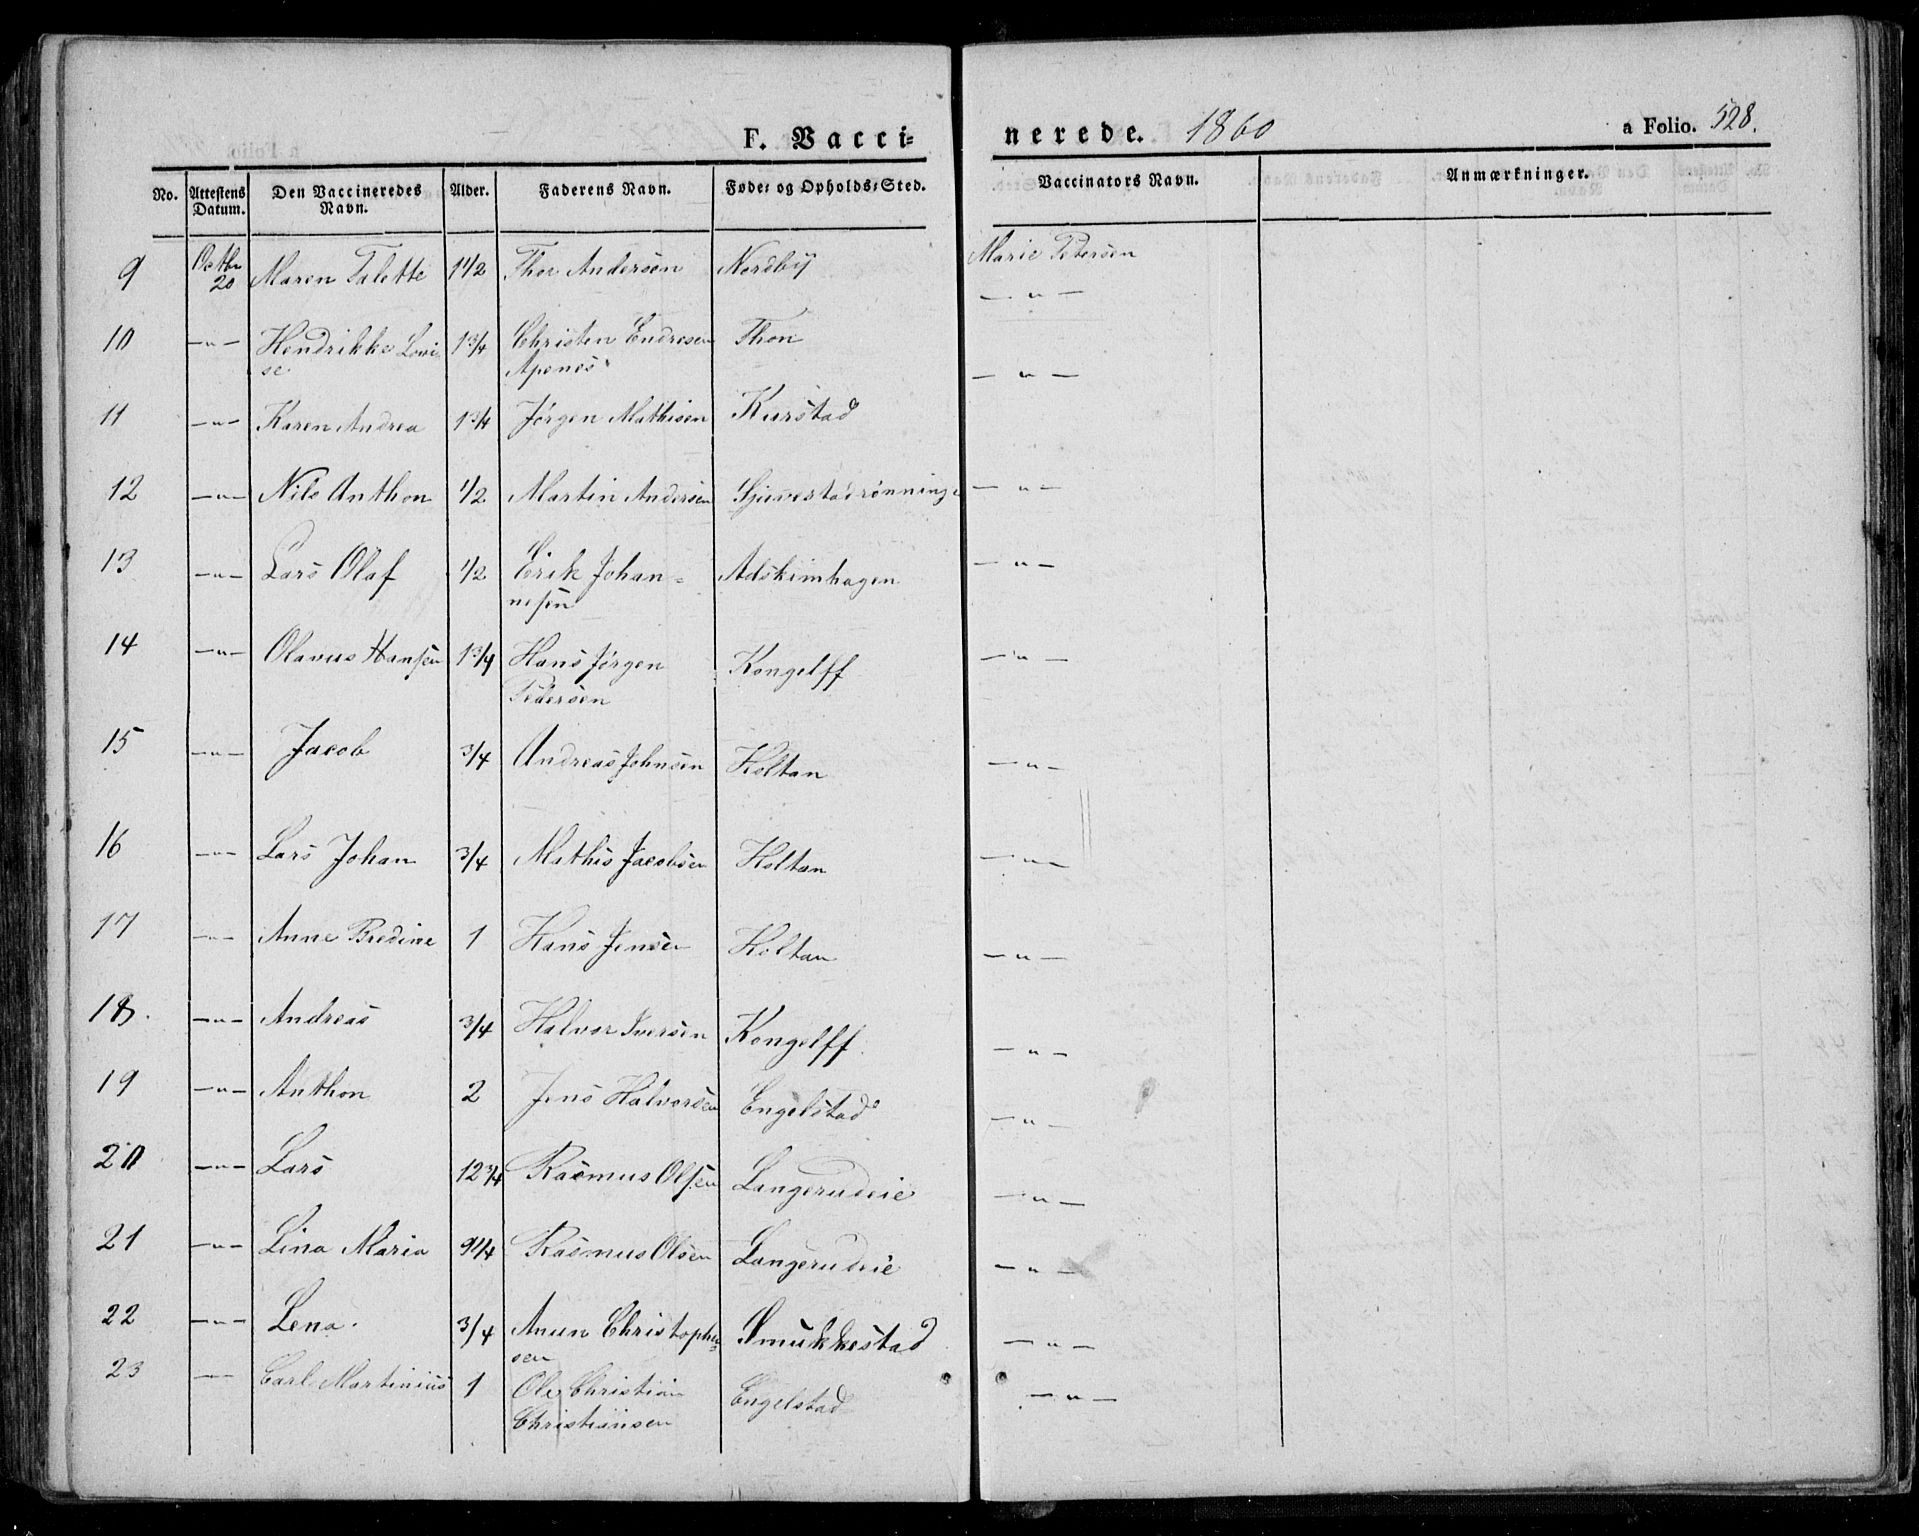 F. Vacci=
nerede. 1860 a Folio. 528.
No. Attestens Datum. Den Vaccineredes Navn. Alder. Faderens Navn. Føde= og Opholds=Sted. Vaccinators Navn. Anmærkninger.
9 Octbr 20 Maren Talette 1 1/2 Thor Andersen Nordby Marie Petersen
—"—
10 —"— Hendrikke Loui 1 3/4 Christen Endresen Thon
se Apenes —"—
11 —"— Karen Andrea 1 3/4 Jørgen Mathisen Kurstad
12 —"— Nils Anthon 1/2 Martin Andersen Sjuvestadrønning —"—
13 —"— Lars Olaf 1/2 Erik Johan= Adskimhagen —"—
nesen
14 —"— Olavus Hansen 1 3/4 Hans Jørgen Kongelff —"—
Pedersen
15 —"— Jacob 3/4 Andreas Johnsen Holtan —"—
16 —"— Lars Johan 3/4 Mathis Jacobsen Holtan —"—
17 —"— Anne Bredine 1 Hans Jensen Holtan —"—
18. —"— Andreas 3/4 Halvor Iversen Kongelff —"—
19 —"— Anthon 2 Jens Halvorsen Engelstad —"—
20 —"— Lars 12 3/4 Rasmus Olsen Langerudeie —"—
21 —"— Lina Maria 9 1/4 Rasmus Olsen Langerudeie —"—
22 —"— Lena. 3/4 Anun Christophe= Smukkestad —"—
sen
23 —"— Carl Martinius 1 Ole Christian Engelstad —"—
Christiansen